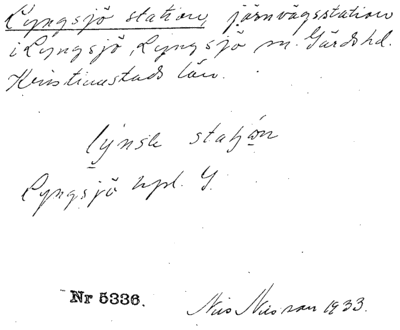 Lyngsjö station, järnvägsstation
i Lyngsjö, Lyngsjö sn. Gärds hd.
Kristianstads län.
lýnse stašón
Lyngsjö hpl. G.
Nr 5336.
Nils Nilsson 1933.